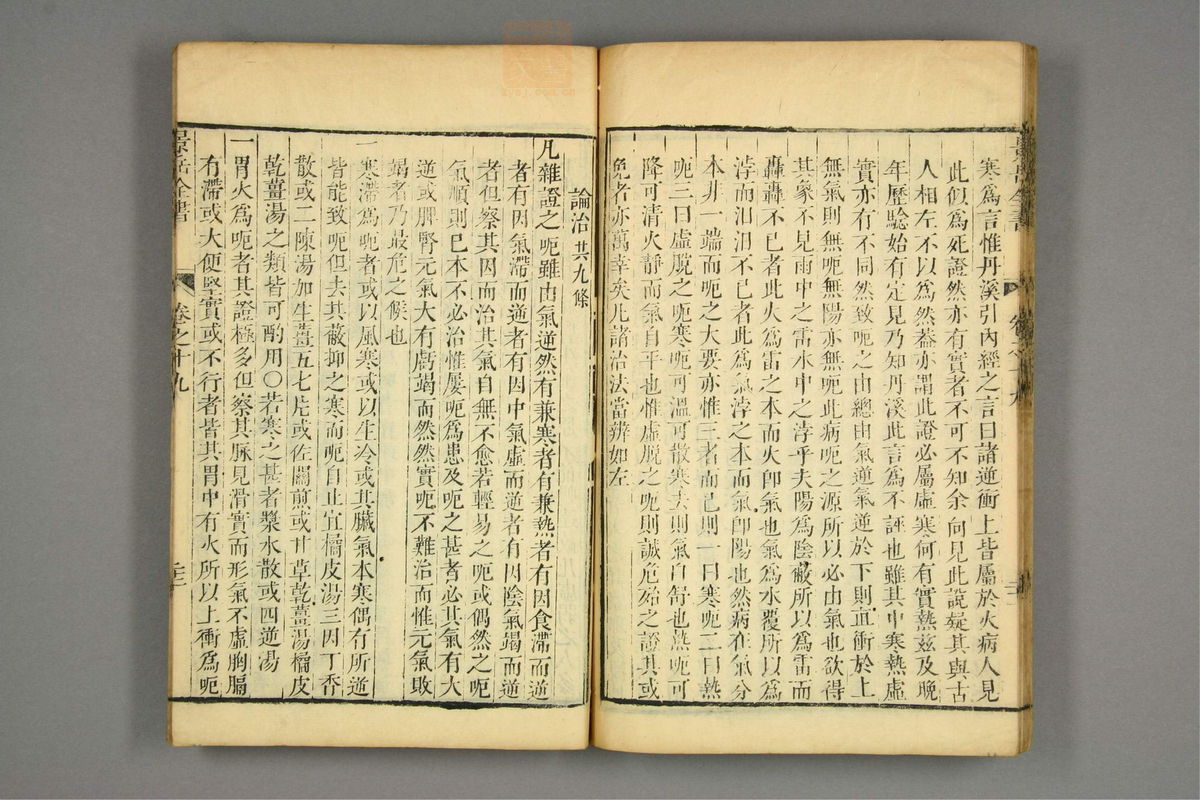 寒爲言惟丹溪引內經之言曰諸逆衝上皆屬於火病人見
此似爲死證然亦有實者不可不知余向見此說疑其與古
人相左不以爲然蓋亦謂此證必屬虛寒何有實熱茲及晚
年歷驗始有定見乃知丹溪此言爲不誣也雖其中寒熱虛
實亦有不同然致呃之由總由氣逆氣逆於下則直衝於上
無氣則無呃無陽亦無呃此病呃之源所以必由氣也欲得
其象不見雨中之雷水中之浡乎夫陽爲陰蔽所以爲雷而
轟轟不已者此火爲雷之本而火卽氣也氣爲水覆所以爲
浡而汩汩不已者此爲氣浡之本而氣卽陽也然病在氣分
本非一端而呃之大要亦惟三者而已則一曰寒呃二曰熱
呃三曰虛脫之呃寒呃可溫可散寒去則氣自舒也熱呃可
降可清火靜而氣自平也惟虛脫之呃則誠危殆之證其或
免者亦萬幸矣凡諸治法當辨如左
論治 共九條
凡雜證之呃雖由氣逆然有兼寒者有兼熱者有因食滯而逆
者有因氣滯而逆者有因中氣虛而逆者有因陰氣竭而逆
者但察其因而治其氣自無不愈若輕易之呃或偶然之呃
氣順則已本不必治惟屢呃爲患及呃之甚者必其氣有大
逆或脾腎元氣大有虧竭而然然實呃不難治而惟元氣敗
竭者乃最危之候也
一寒滯爲呃者或以風寒或以生冷或其臟氣本寒偶有所逆
皆能致呃但去其蔽抑之寒而呃自止宜橘皮湯三因丁香
散或二陳湯加生薑五七片或佐關煎或甘草乾薑湯橘皮
乾薑湯之類皆可酌用〇若寒之甚者漿水散或四逆湯
一胃火爲呃者其證極多但察其脈見滑實而形氣不虛胸膈
有滯或大便堅實或不行者皆其胃中有火所以上衝爲呃
景岳全書
卷之十九